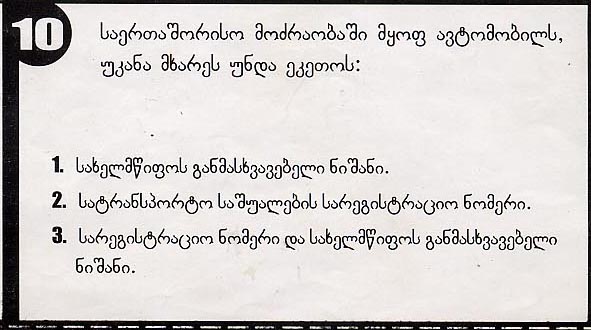 10
საერთაშორისო მოძრაობაში მყოფ ავტომობილს,
უკანა მხარეს უნდა ეკეთოს:
1. სახელმწიფოს განმასხვავებელი ნიშანი.
2. სატრანსპორტო საშუალების სარეგისტრაციო ნომერი.
3. სარეგისტრაციო ნომერი და სახელმწიფოს განმასხვავებელი
ნიშანი.